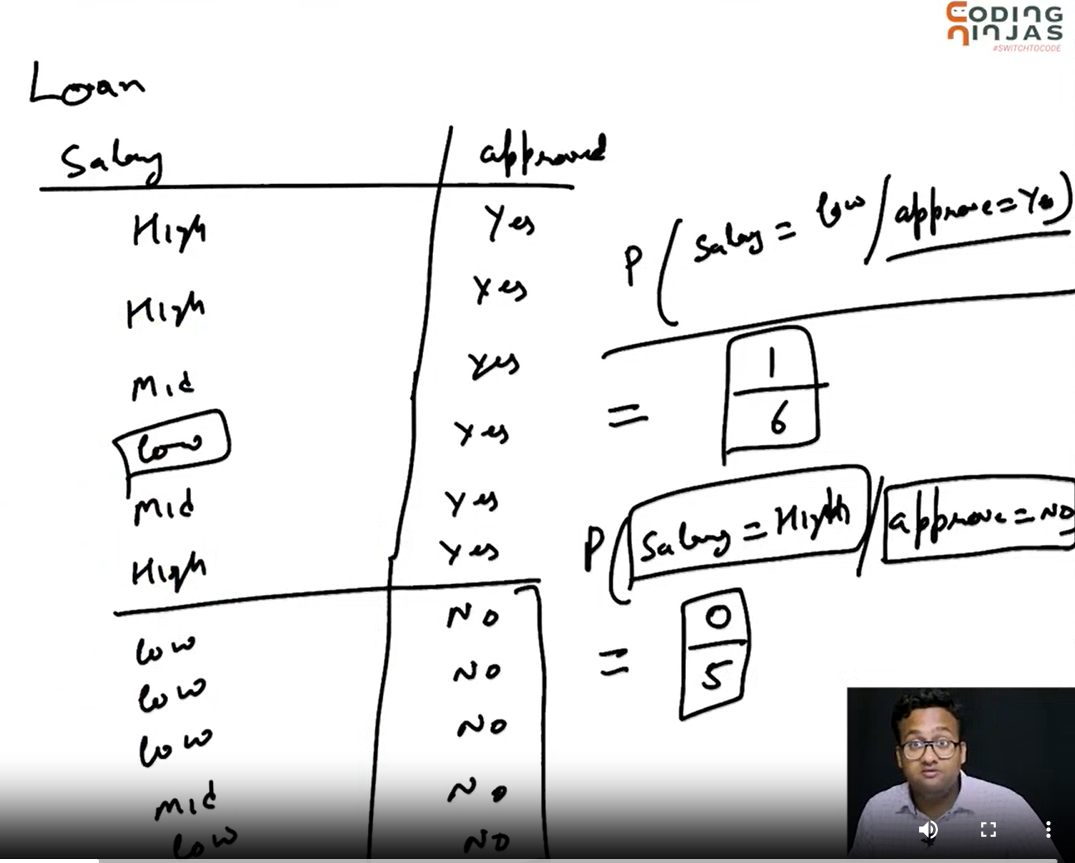 CODING
NINJAS
#SWITCHTOCODE
Loan
Salary approved
High Yes
High Yes
Mid Yes
Low Yes
Mid Yes
High Yes
Low NO
Low NO
Low NO
Mid NO
Low NO
P ( Salary = low / approve = Yes )
= 1
6
P ( Salary = High / approve = NO
= 0
5